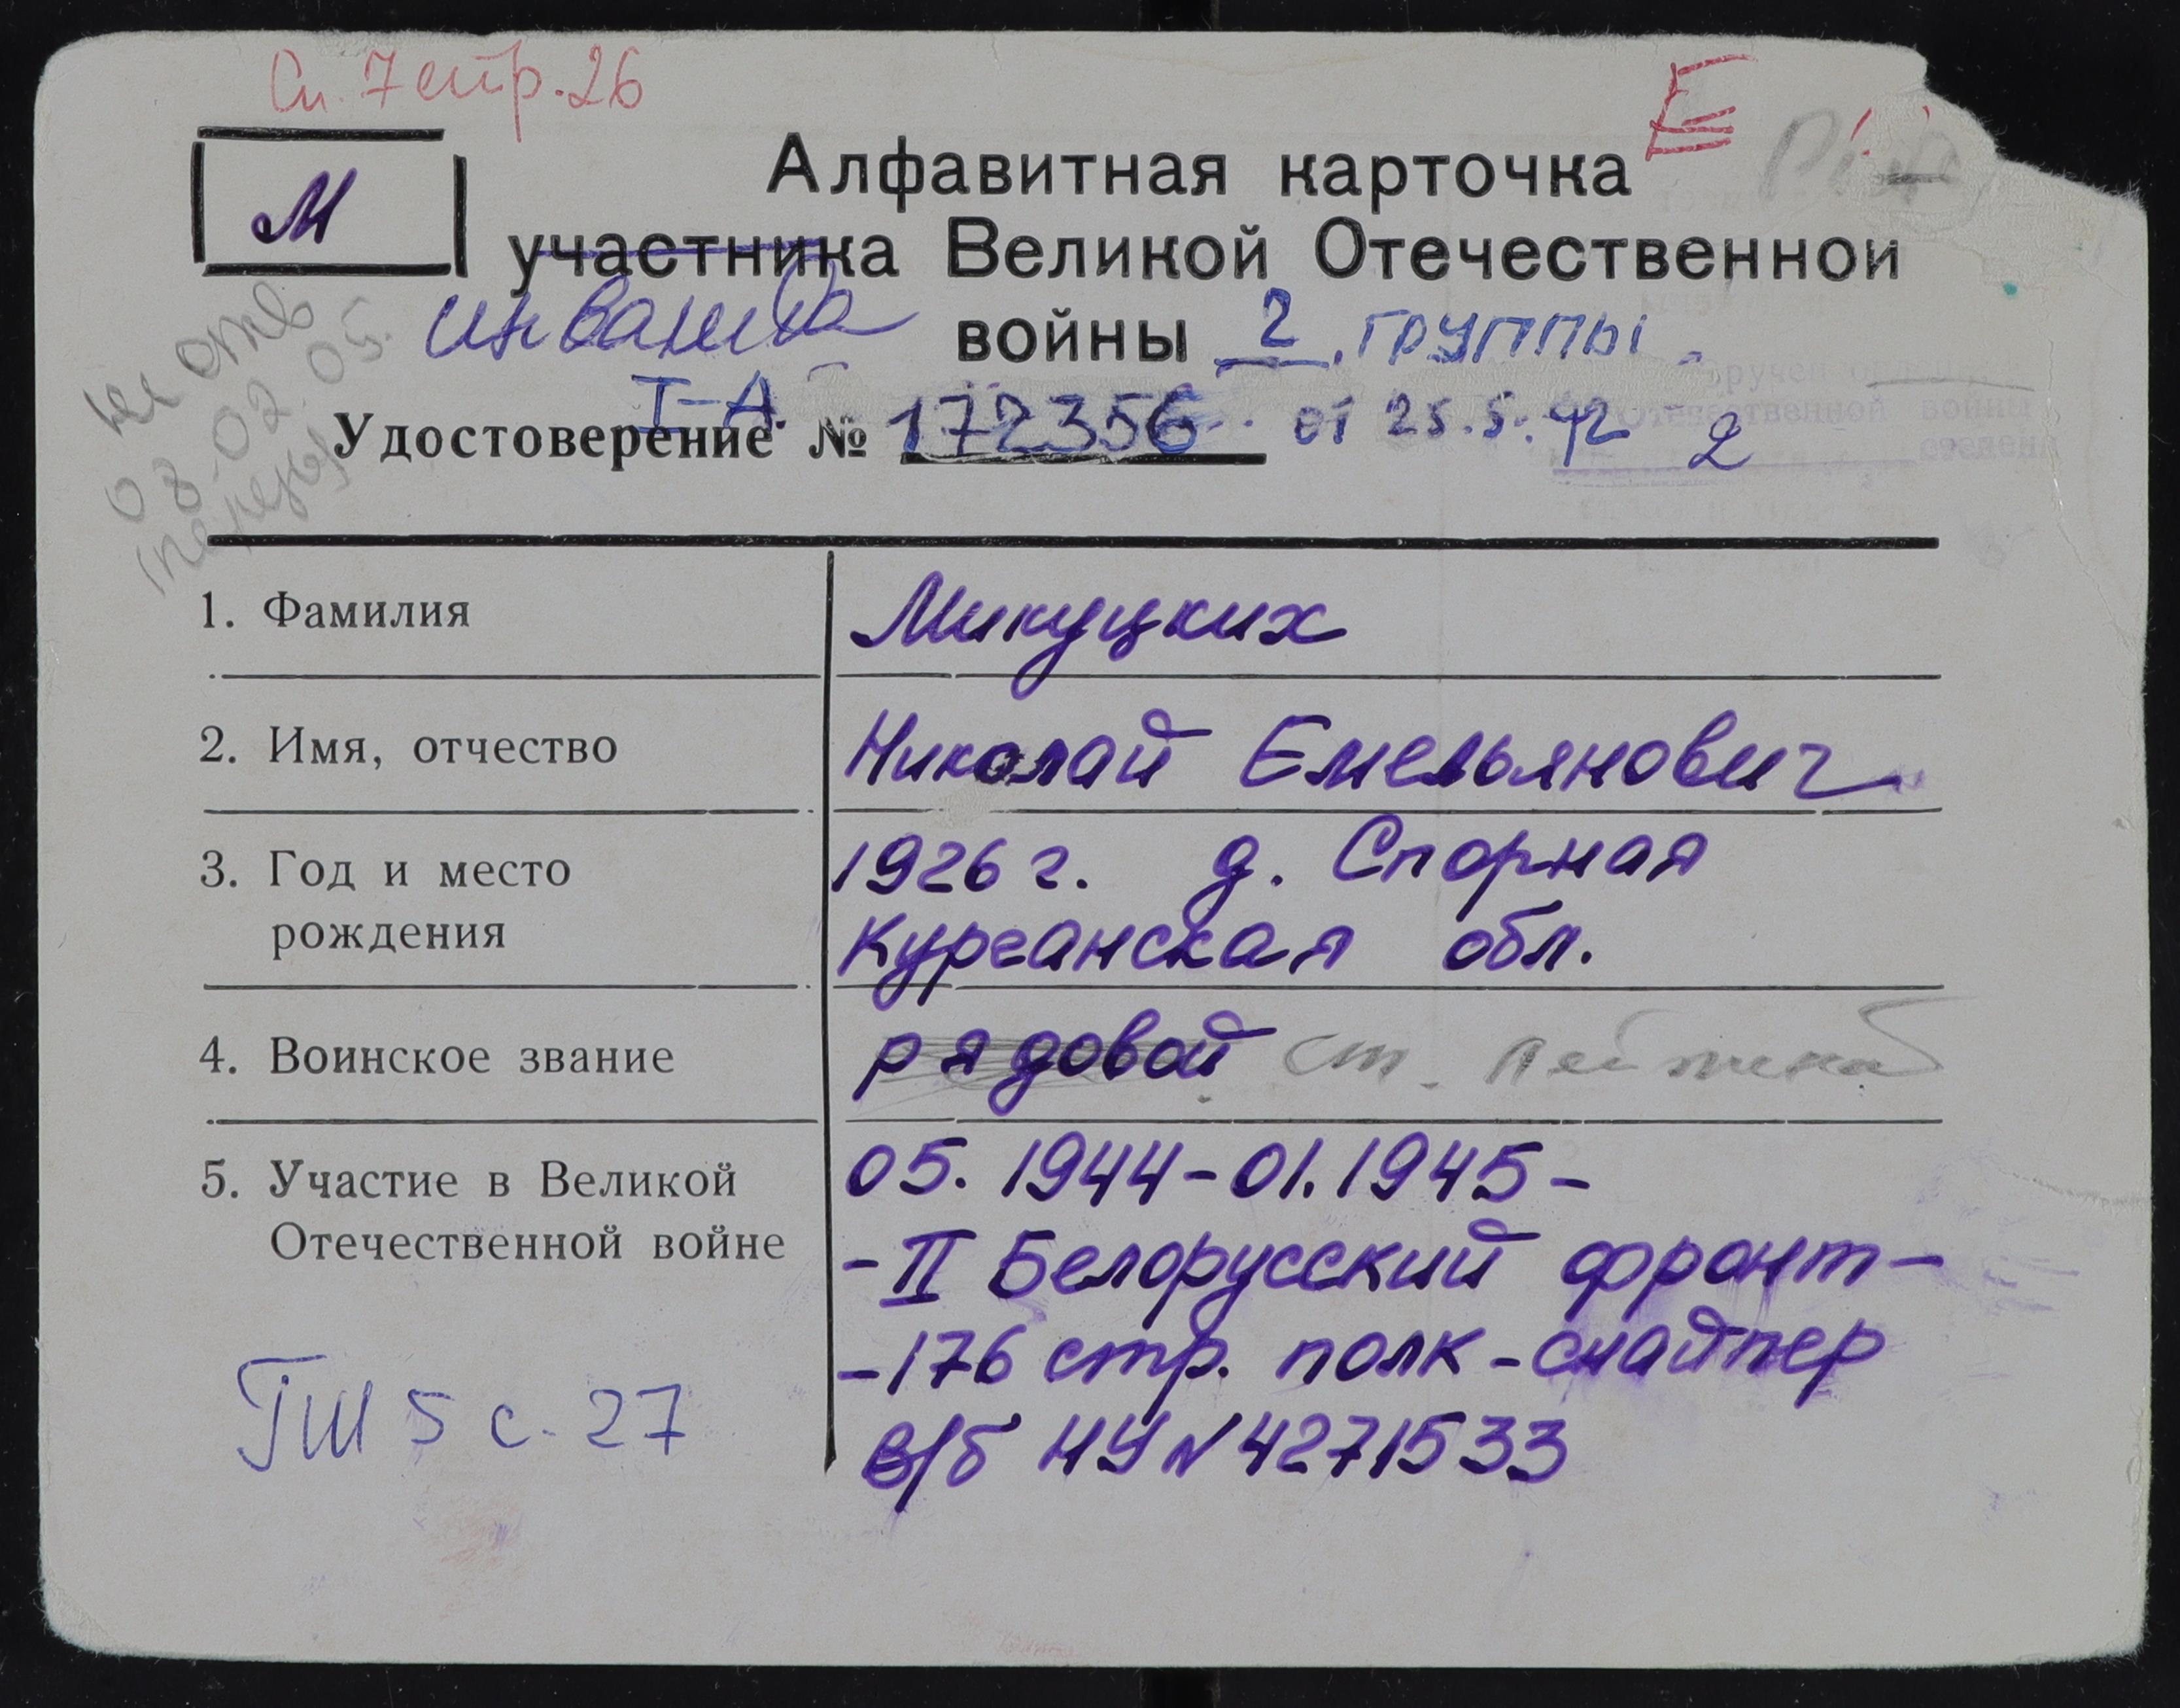 Сп. 7 стр. 26
М
Алфавитная карточка
участника Великой Отечественной
инвалида войны 2 группы.
I-А.
Удостоверение № 172356 от 25.5. 92 2
не отв
08.02.05.
1. Фамилия Микуцких
2. Имя, отчество Николай Емельянович
3. Год и место 1926 г. д. Спорная
рождения Курганская обл.
4. Воинское звание рядовой ст. лейтенант
5. Участие в Великой 05. 1944-01.1945-
Отечественной войне -II Белорусский фронт-
-176 стр. полк-снайпер
ГШ 5 с. 27 в/б НУ N 4271533